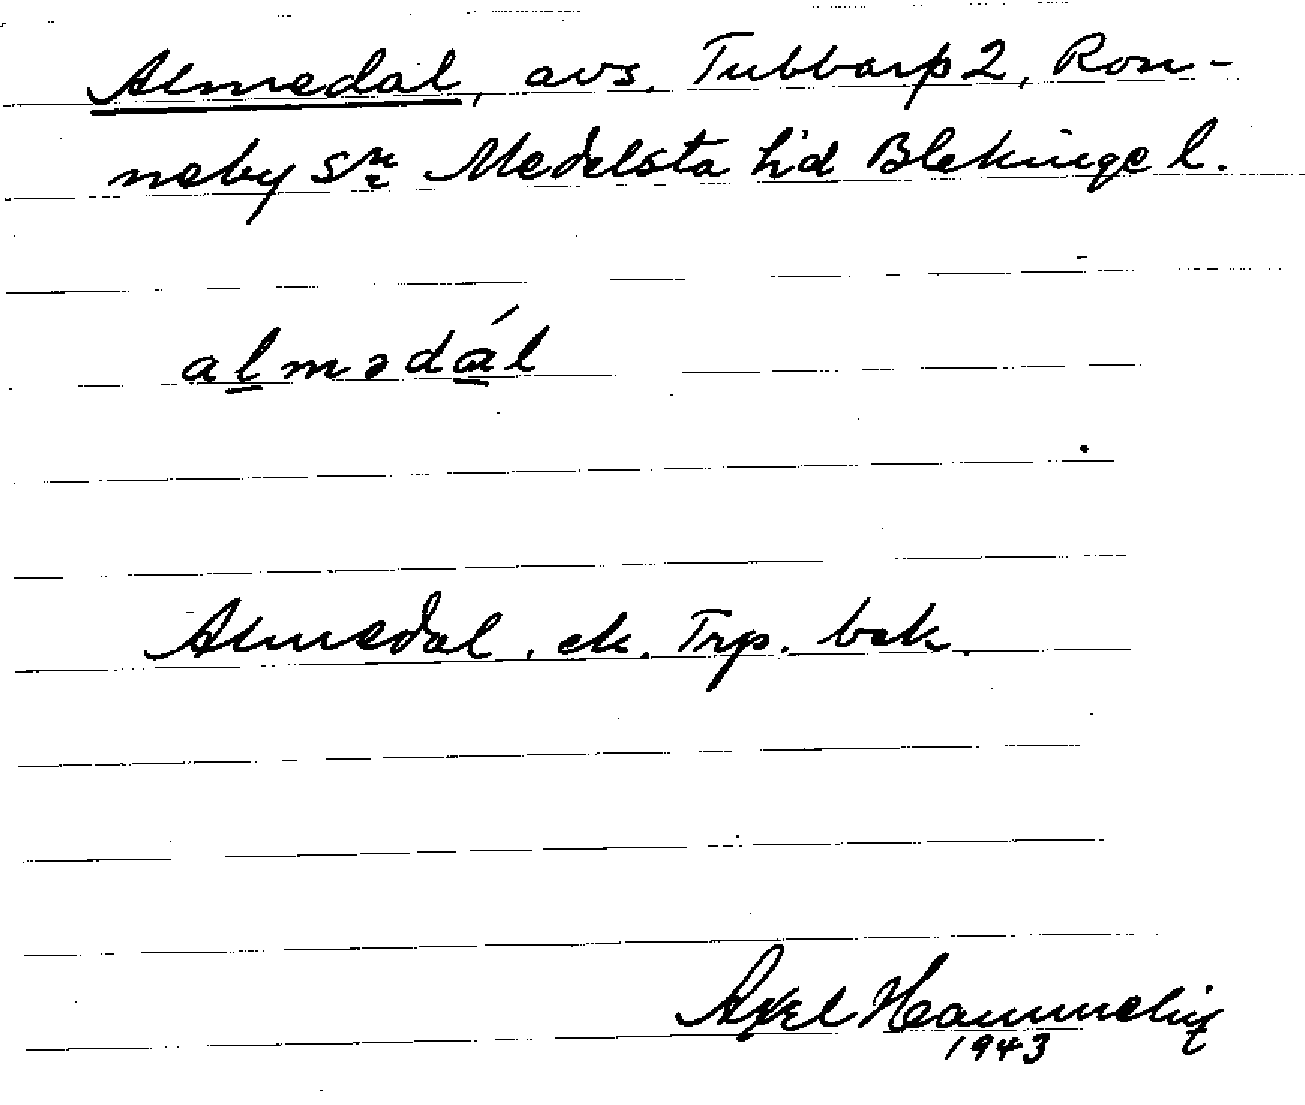 Almedal, avs. Tubbarp 2, Ron-
neby sn Medelsta h'd Blekinge l.
almədál
Almedal, ek. Trp. bek.
Axel Hammelig
1943